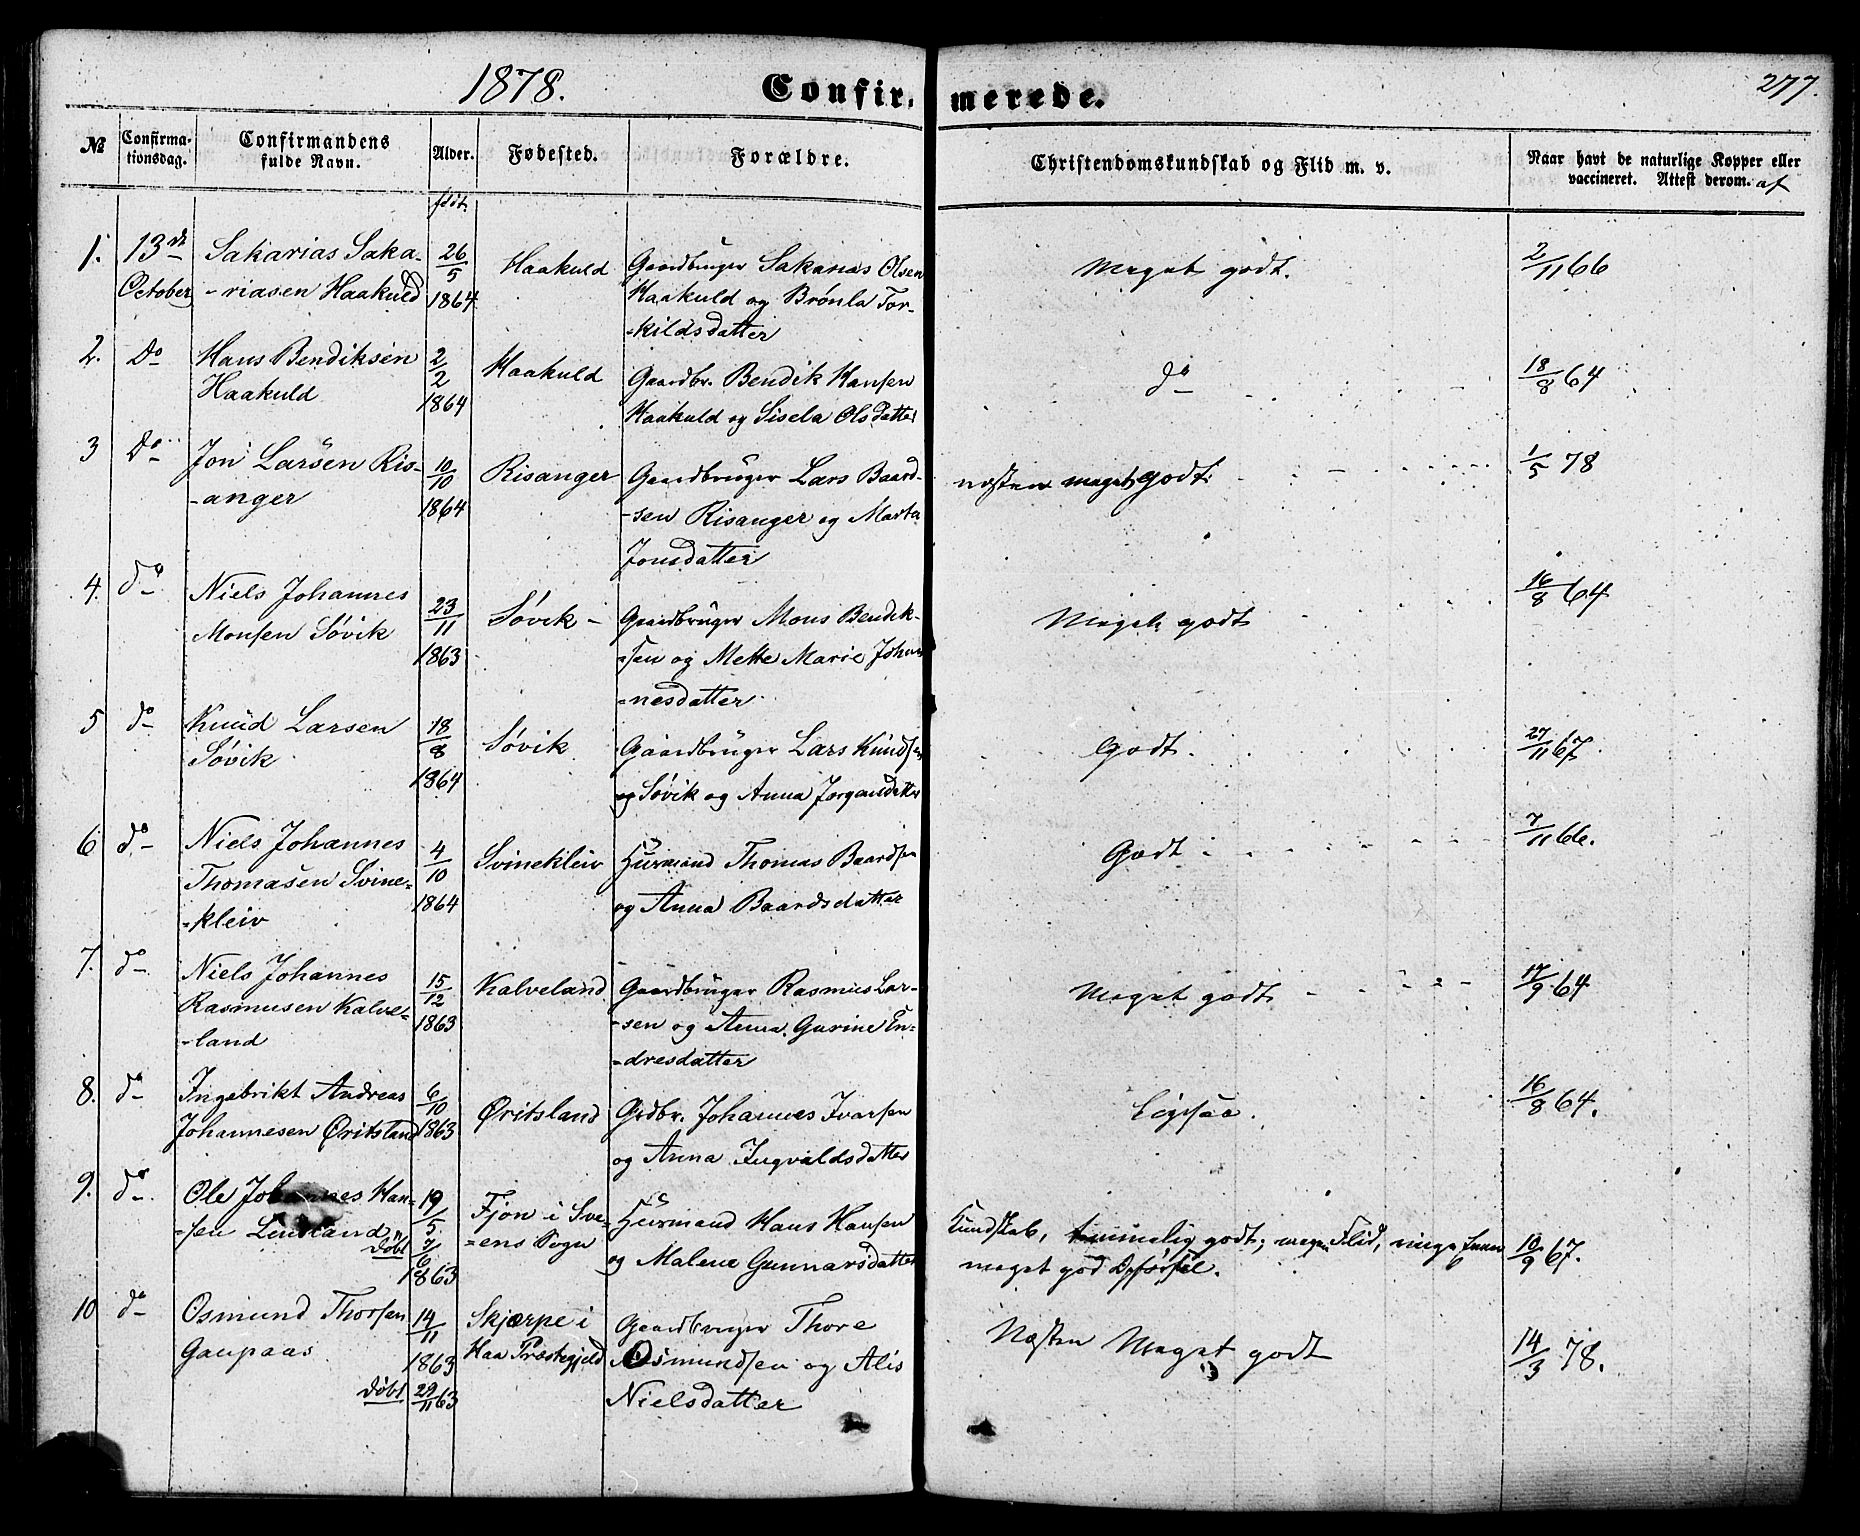 1878.
Confir, merede.
277.
№
Confirma-
tionsdag.
Confirmandens
fulde Navn.
Alder.
Fødested.
Forældre.
Christendomskundskab og Flid m. v.
Naar havt de naturlige Kopper eller
vaccineret. Attest derom. af
født.
1. 13de Sakarias Saka- 26/5 Haakuld Gaardbruger Sakarias Olsen Meget godt. 2/11 66
October -riasen Haakuld 1864 Haakuld og Brønla Tor-
-kildsdatter
2. Do Hans Bendiksen 2/2 Haakuld Gaardbr. Bendik Hansen do 18/8 64
Haakuld 1864 Haakuld og Sisela Olsdatter
3 Do Jon Larsen Ris- 10/10 Risanger Gaardbruger Lars Baard- næsten meget godt. 1/5 78
-anger 1864 -sen Risanger og Marta
Jonsdatter
4. do Niels Johannes 23/11 Søvik - Gaardbruger Mons Bendik- Meget godt 16/8 64
Monsen Søvik 1863 -sen og Mette Marie Johan
-nesdatter
5 do Knud Larsen 18/8 Søvik Gaardbruger Lars Knudsen Godt. 27/11 67.
Søvik 1864 og Søvik og Anna Jørgansdatter
6 do Niels Johannes 4/10 Svinekleiv Huusmand Thomas Baardsen Godt 7/11 66.
Thomasen Svine- 1864 og Anna Baardsdatter
-kleiv
7. do Niels Johannes 15/12 Kalveland Gaardbruger Rasmus Lar- Meget godt 17/9 64
Rasmusen Kalve- 1863 -sen og Anna Gurine En-
-land -dresdatter
8. do Ingebrikt Andreas 6/10 Øritsland Grdbr. Johannes Ivarsen Ligesaa. 16/8 64.
Johannesen Øritsland 1863 og Anna Ingvaldsdatter
9. do Ole Johannes Han- 19/5 Fjon i Sve- Huusmand Hans Hansen Kundskab, temmelig godt; megen Flid, 10/9 67.
-sen døbt 7/6 1863 -ens Sogn og Malene Gunnarsdatter meget god Opførsel.
10 do Osmund Thorsen 14/11 Skjærpe i Gaardbruger Thore Næsten Meget godt 14/3 78.
Gaupaas 1863 Haa Præstegjeld Osmundsen og Alis
døbt 29/11 63 Nielsdatter